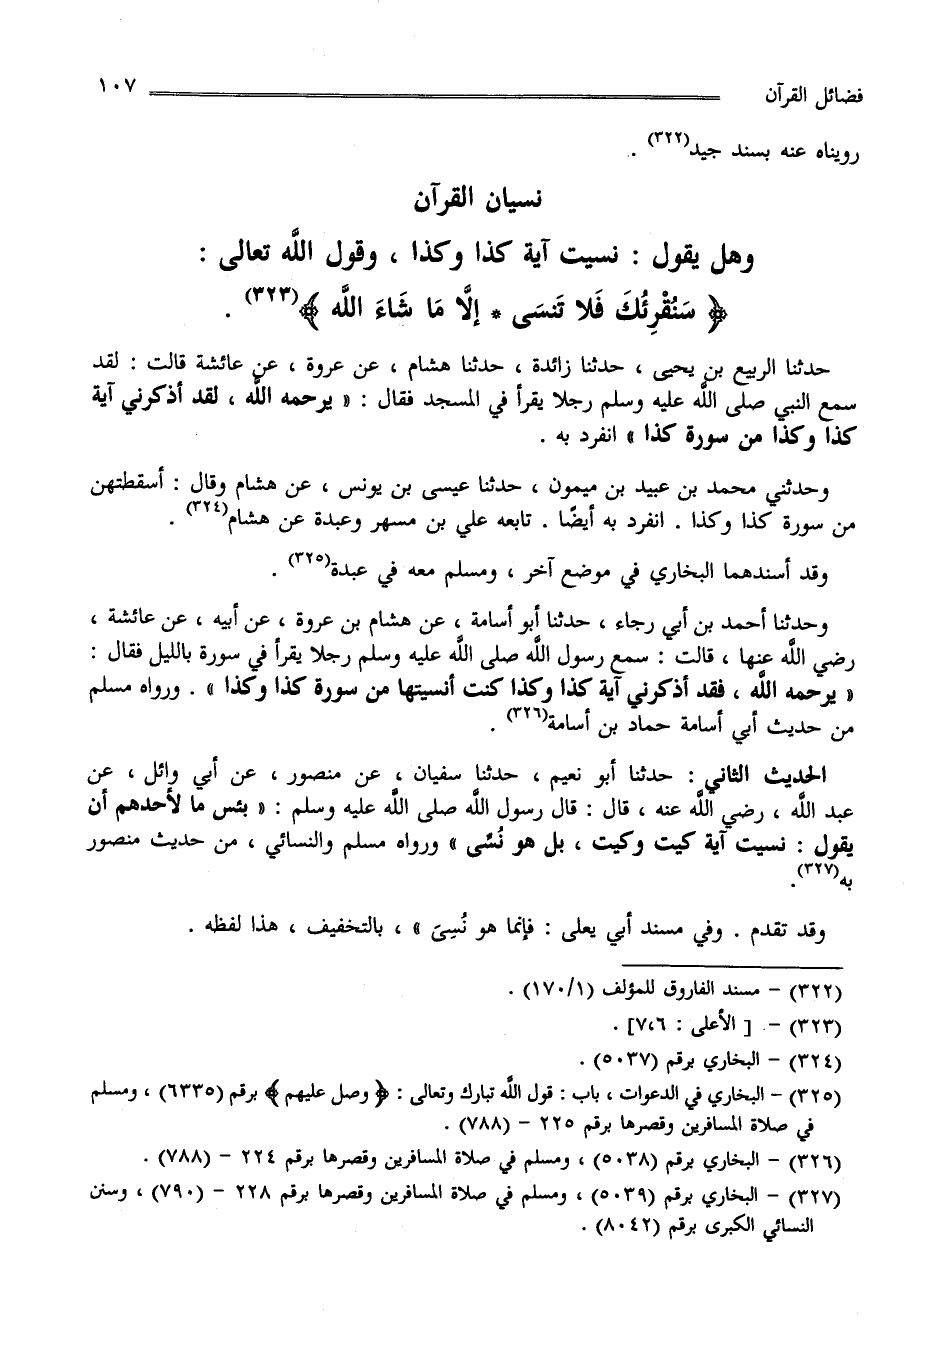 فضائل القرآن ١٠٧
رويناه عنه بسند جيد(٣٢٢) .
نسيان القرآن
وهل يقول : نسيت آية كذا وكذا ، وقول اللَّه تعالى :
﴿ سَنُقْرِئُكَ فَلا تَنسَى * إلَّا مَا شَاءَ اللَّه ﴾(٣٢٣) .
حدثنا الربيع بن يحيى ، حدثنا زائدة ، حدثنا هشام ، عن عروة ، عن عائشة قالت : لقد
سمع النبي صلى اللَّه عليه وسلم رجلا يقرأ في المسجد فقال : « يرحمه اللَّه ، لقد أذكرني آية
كذا وكذا من سورة كذا » انفرد به .
وحدثني محمد بن عبيد بن ميمون ، حدثنا عيسى بن يونس ، عن هشام وقال : أسقطتهن
من سورة كذا وكذا . انفرد به أيضًا . تابعه علي بن مسهر وعبدة عن هشام(٣٢٤) .
وقد أسندهما البخاري في موضع آخر ، ومسلم معه في عبدة(٣٢٥) .
وحدثنا أحمد بن أبي رجاء ، حدثنا أبو أسامة ، عن هشام بن عروة ، عن أبيه ، عن عائشة ،
رضي اللَّه عنها ، قالت : سمع رسول اللَّه صلى اللَّه عليه وسلم رجلا يقرأ في سورة بالليل فقال :
« يرحمه اللَّه ، فقد أذكرني آية كذا وكذا كنت أنسيتها من سورة كذا وكذا » . ورواه مسلم
من حديث أبي أسامة حماد بن أسامة(٣٢٦) .
الحديث الثاني : حدثنا أبو نعيم ، حدثنا سفيان ، عن منصور ، عن أبي وائل ، عن
عبد اللَّه ، رضي اللَّه عنه ، قال : قال رسول اللَّه صلى اللَّه عليه وسلم : « بئس ما لأحدهم أن
يقول : نسيت آية كيت وكيت ، بل هو نُسِّي » ورواه مسلم والنسائي ، من حديث منصور
به(٣٢٧).
وقد تقدم . وفي مسند أبي يعلى : فإنما هو نُسِيَ » ، بالتخفيف ، هذا لفظه .
(٣٢٢) – مسند الفاروق للمؤلف (١/‏١٧٠) .
(٣٢٣) – [ الأعلى : ٧،٦] .
(٣٢٤) – البخاري برقم (٥٠٣٧) .
(٣٢٥) – البخاري في الدعوات ، باب : قول اللَّه تبارك وتعالى : ﴿ وصل عليهم ﴾ برقم (٦٣٣٥) ، ومسلم
في صلاة المسافرين وقصرها برقم ٢٢٥ – (٧٨٨) .
(٣٢٦) – البخاري برقم (٥٠٣٨) ، ومسلم في صلاة المسافرين وقصرها برقم ٢٢٤ – (٧٨٨) .
(٣٢٧) – البخاري برقم (٥٠٣٩) ، ومسلم في صلاة المسافرين وقصرها برقم ٢٢٨ – (٧٩٠) ، وسنن
النسائي الكبرى برقم (٨٠٤٢) .